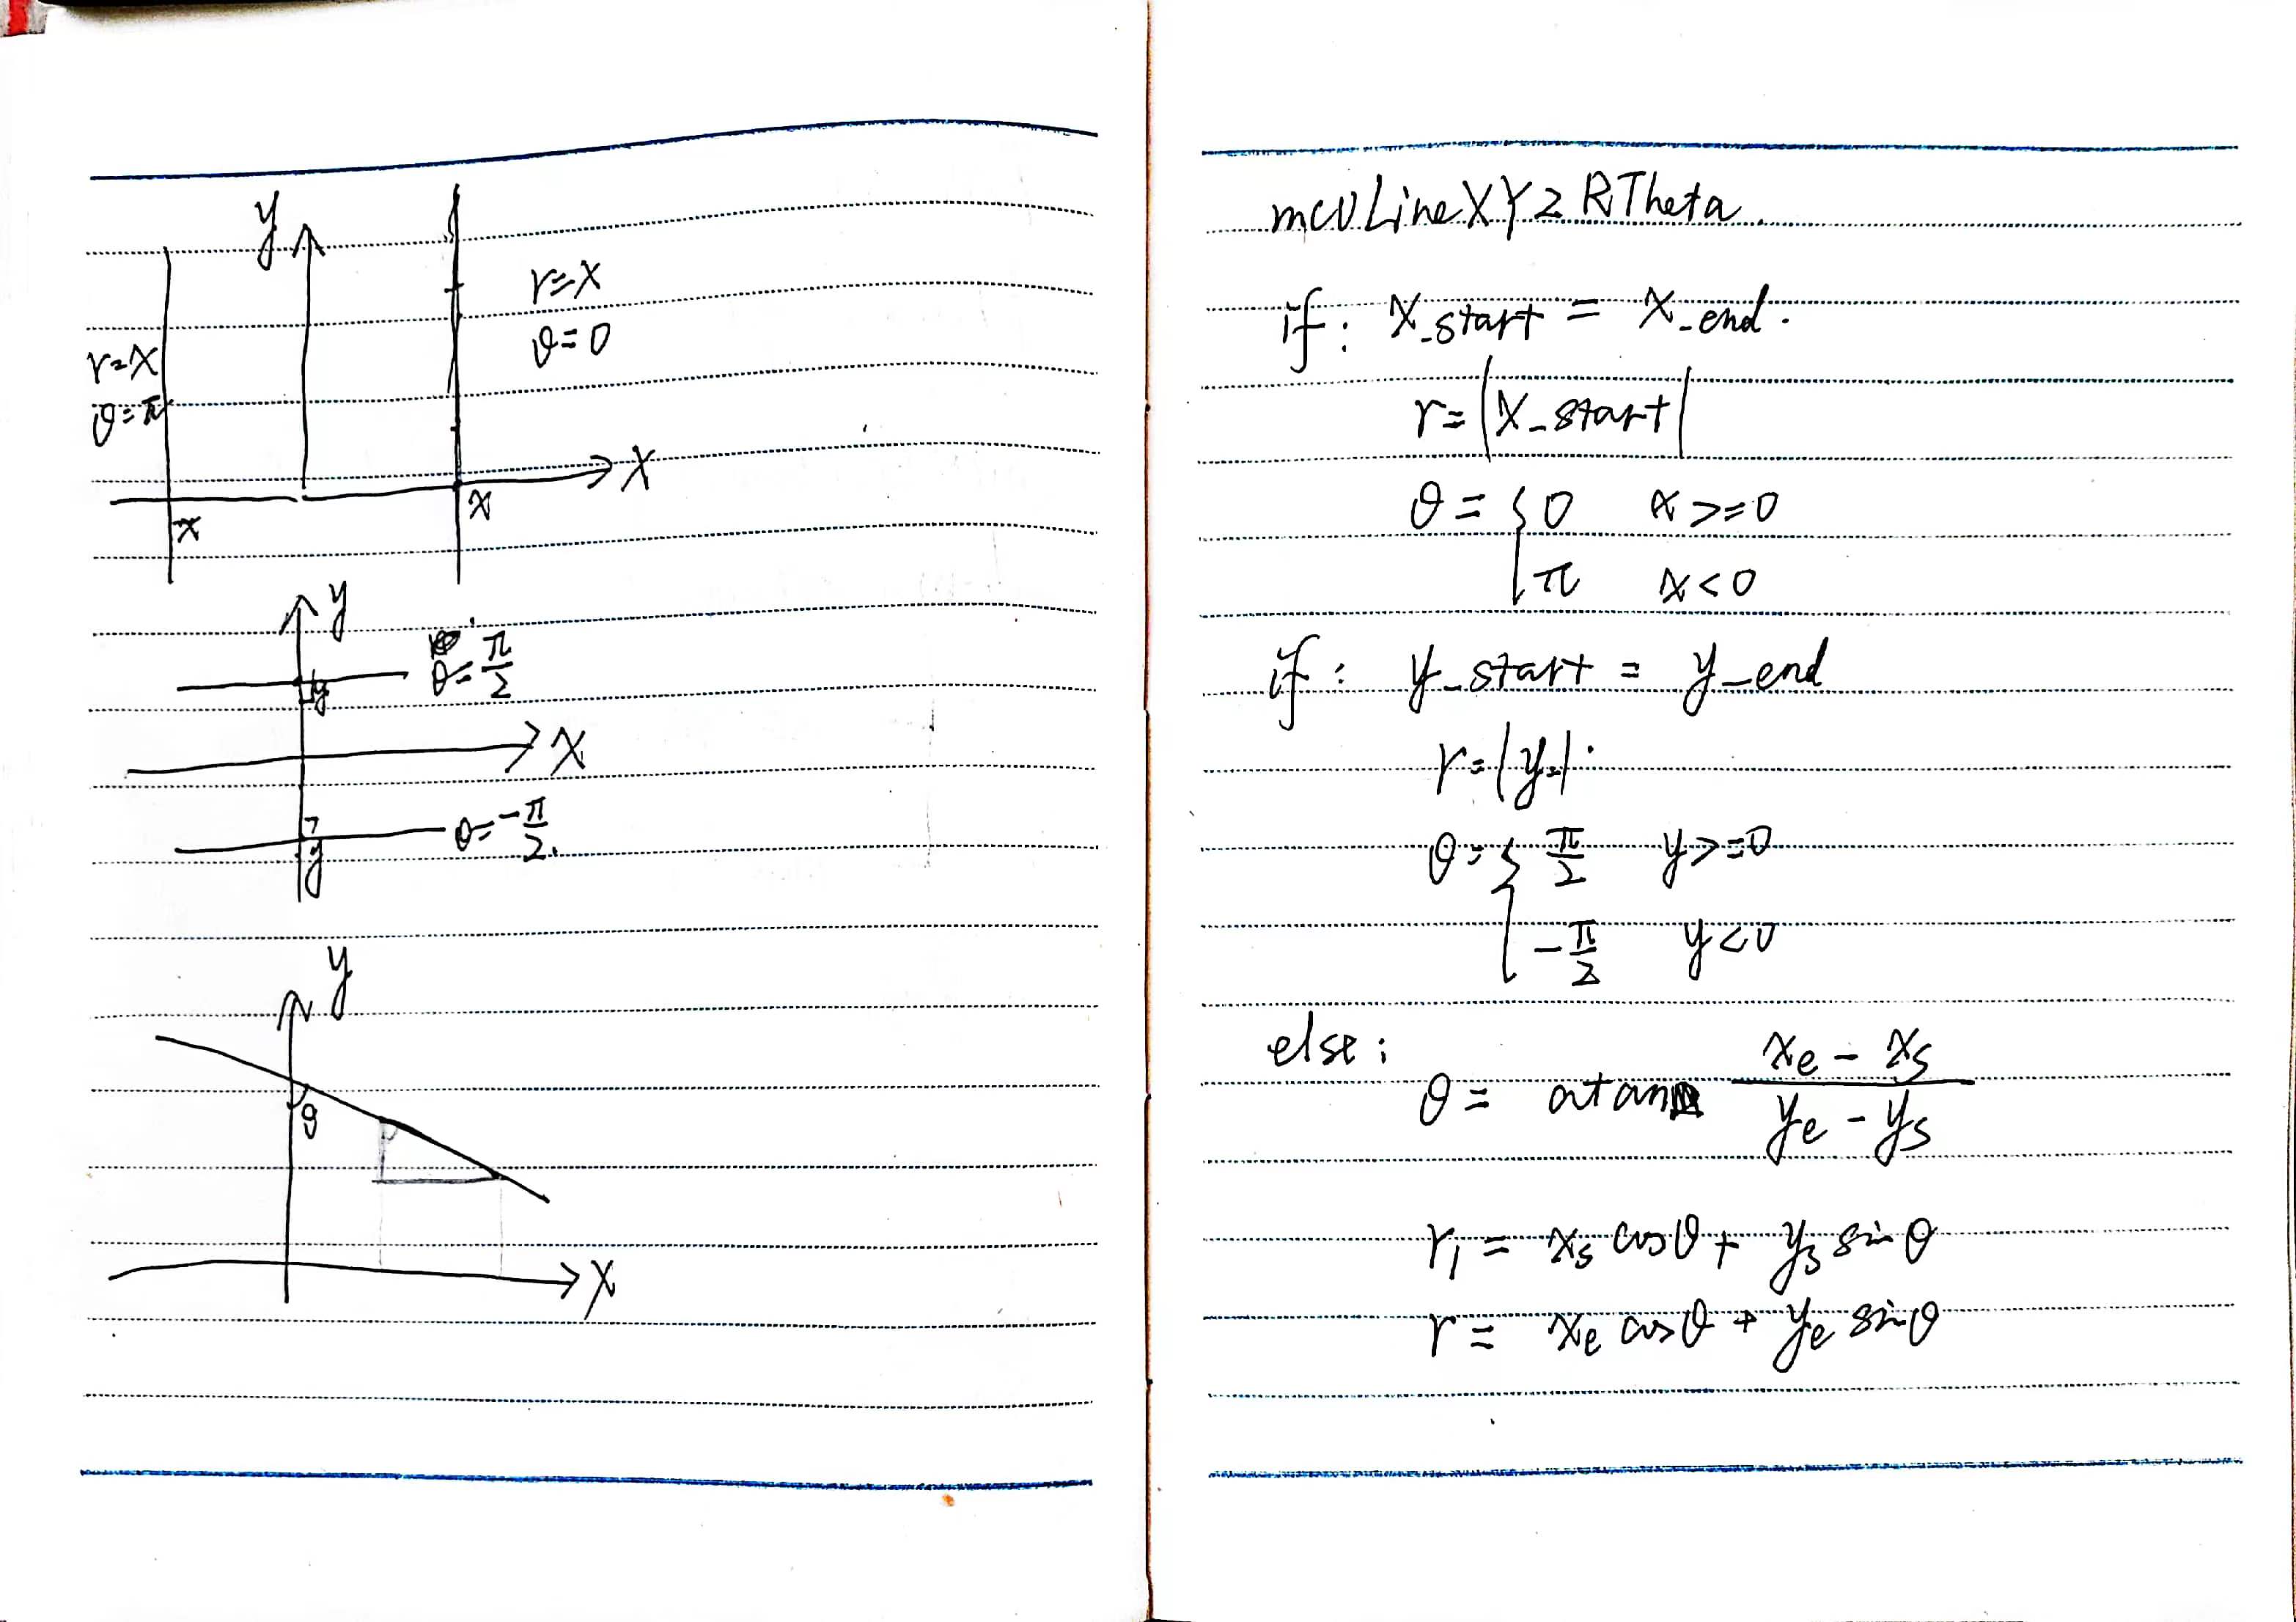 y
r=x
θ=0
r=x
θ=π
X
x
-x
y
θ=π/2
y
X
θ=-π/2.
y
y
θ
X
mcvLineXY2RTheta.
if: X_start = X_end.
r=|X_start|
θ= { 0 x>=0
π x<0
if: y_start = y_end
r=|y|.
θ= { π/2 y>=0
-π/2 y<0
else:
θ= atan (xe - xs)/(ye - ys)
r1 = xs cosθ + ys sinθ
r = xe cosθ + ye sinθ